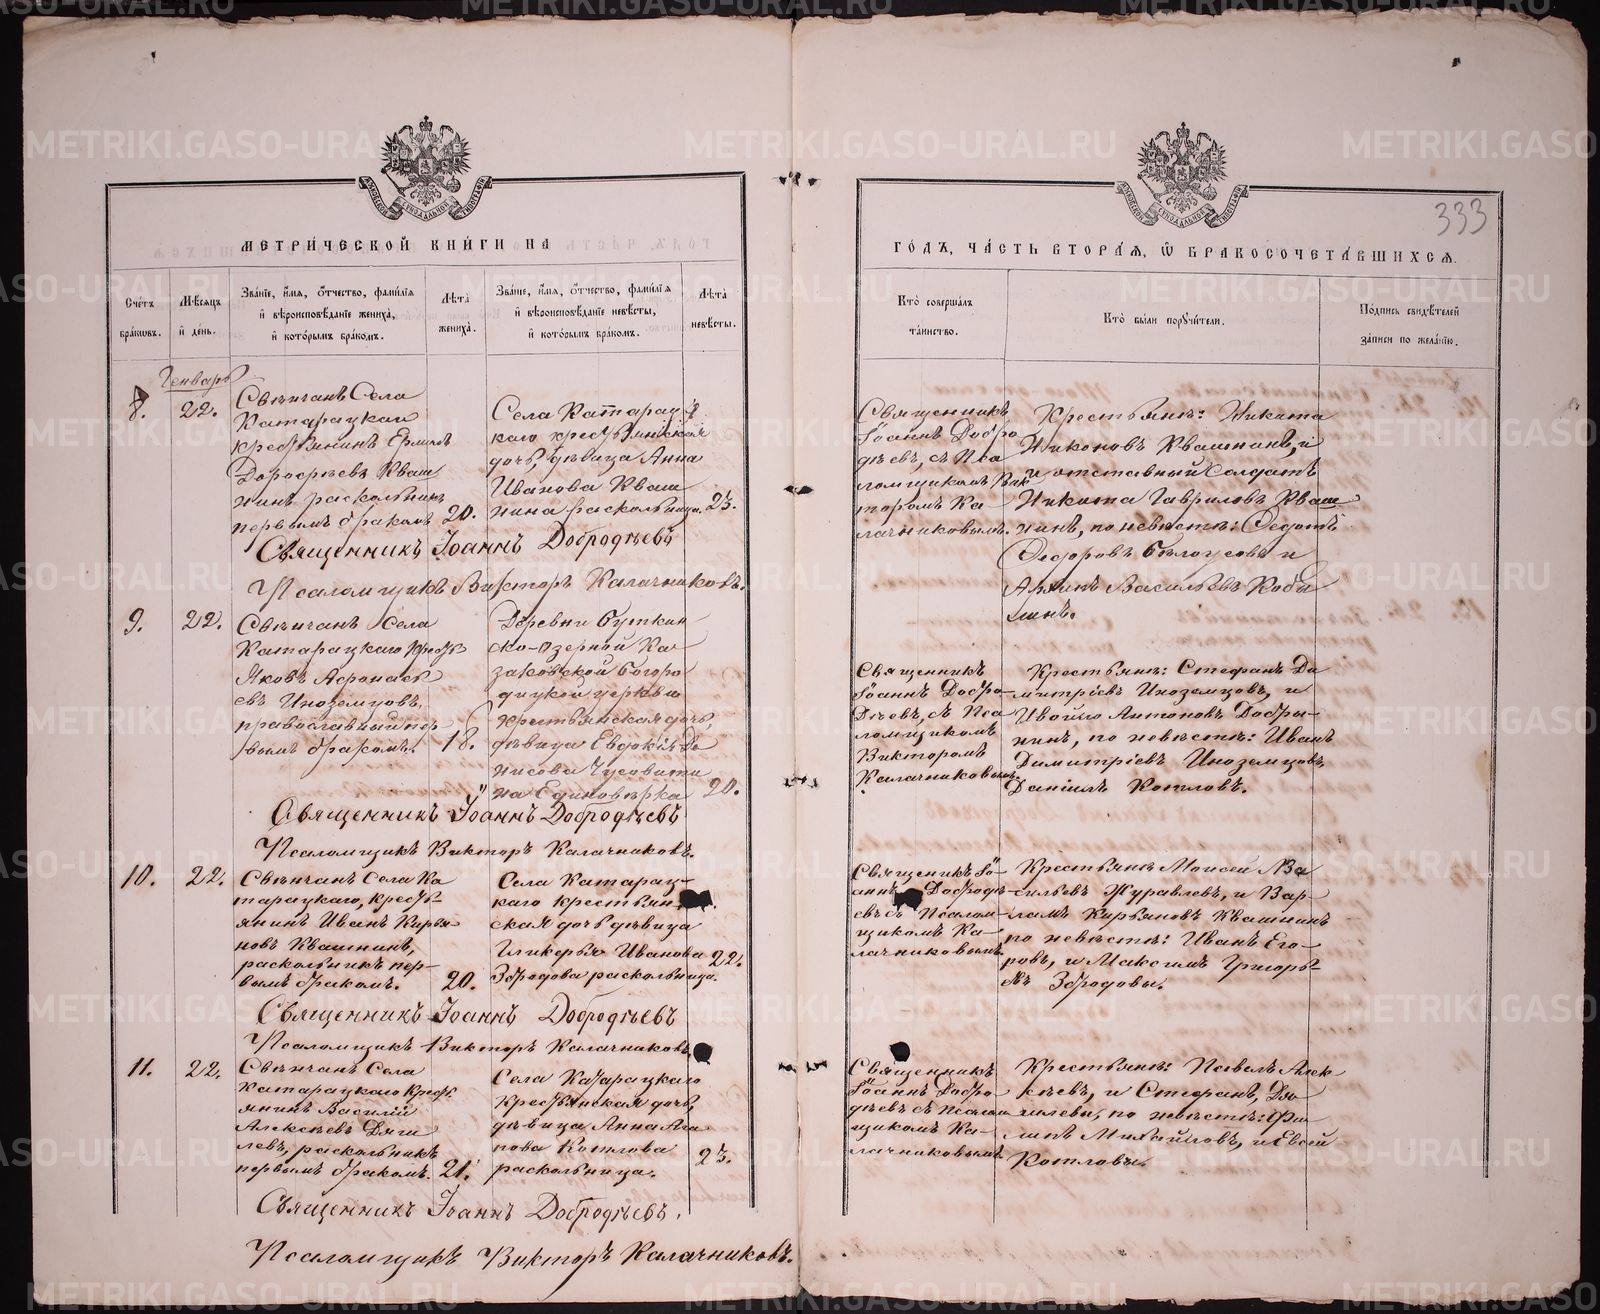 333
МЕТРИ́ЧЕСКОЙ КНИ́ГИ НА
ГО́ДЪ, ЧА́СТЬ ВТОРА́Я, Ѿ БРАКОСОЧЕТА́ВШИХСЯ
Счетъ бра́ковъ.
Мѣсяцъ и҆ день.
Зва́нїе, и҆́мя, ѻ҆́тчество, фами́лїя
и҆ вѣроисповѣ́данїе жениха̀,
и҆ кото́рымъ бра́комъ.
Лѣта̀ жениха̀.
Зва́нїе, и҆́мя, ѻ҆́тчество, фами́лїя
и҆ вѣроисповѣ́данїе невѣ́сты,
и҆ кото́рымъ бра́комъ.
Лѣта̀ невѣ́сты.
Кто̀ соверша́лъ
та́инство.
Кто̀ бы́ли порꙋчи́тели.
По́дпись свидѣ́телей
за́писи по жела́нїю.
Генварь
8.
22.
Свѣнчанъ Села
Катарацкаго
крестьянинъ Ермилъ
Дороѳеевъ Кваш
нинъ раскольникъ
первымъ бракомъ
20.
Села Катарац
каго крестьянская
дочь, дѣвица Анна
Иванова Кваш
нина раскольница.
23.
Священникъ
Іоаннъ Добро
дѣевъ, съ Пса
ломщикомъ Вик
торомъ Ка
лачниковымъ.
Крестьяне: Никита
Никоновъ Квашнинъ, и
и отставный Солдатъ
Никита Гавриловъ Кваш
нинъ, по невѣстѣ: Ѳедотъ
Ѳедоровъ Бѣлоусовъ и
Васильевъ Кобы
линъ.
Священникъ Іоаннъ Добродѣевъ
Псаломщикъ Викторъ Калачниковъ.
9.
22.
Свѣнчанъ Села
Катарацкаго крест
Яковъ Аѳонась
евъ Иноземцовъ,
православный пер
вымъ бракомъ.
18.
Деревни Буткин
ско-Озерной Ка
заковской Богоро
дицкой церкви
крестьянская дочь,
дѣвица Евдокія Де
нисова Чусовити
на Единовѣрка
20.
Священникъ
Іоаннъ Добро-
дѣевъ, съ Пса
ломщикомъ
Викторомъ
Калачниковымъ.
Крестьяне: Стефанъ Ди
митріевъ Иноземцовъ, и
Антоновъ Добры-
нинъ, по невѣстѣ: Иванъ
Димитріевъ Иноземцовъ,
Даніилъ Котловъ.
Священникъ Іоаннъ Добродѣевъ
Псаломщикъ Викторъ Калачниковъ.
10.
22.
Свѣнчанъ Села Ка
тарацкаго, кресть-
янинъ Иванъ Кирья
новъ Квашнинъ,
раскольникъ пер-
вымъ бракомъ.
20.
Села Катарац-
каго крестьян
ская дочь дѣвица
Гликерья Иванова
Збродова раскольница.
22.
Священникъ Іо-
аннъ Добродѣ-
евъ съ Псалом-
щикомъ Ка-
лачниковымъ.
Крестьяне Моисей Ва
сильевъ Журавлевъ, и Вар
ламъ Кирьяновъ Квашнинъ
по невѣстѣ: Иванъ Его-
ровъ, и Максимъ Григорь-
евъ Збродовы.
Священникъ Іоаннъ Добродѣевъ
Псаломщикъ Викторъ Калачниковъ.
11.
22.
Свѣнчанъ Села
Катарацкаго крест
янинъ Василій
Алексѣевъ Дяги
левъ, раскольникъ
первымъ бракомъ.
21.
Села Катарацкаго
Крестьянская дочь,
дѣвица Анна Ага
пова Котлова
раскольница.
23.
Священникъ
Іоаннъ Добро
дѣевъ съ Псалом
щикомъ Ка-
лачниковымъ
Крестьяне: Павелъ Алек
сѣевъ, и Стефанъ, Дя
гилевы, по невѣстѣ: Фи
липъ Михайловъ, и Евсей
Котловы.
Священникъ Іоаннъ Добродѣевъ.
Псаломщикъ Викторъ Калачниковъ.
METRIKI.GASO-URAL.RU